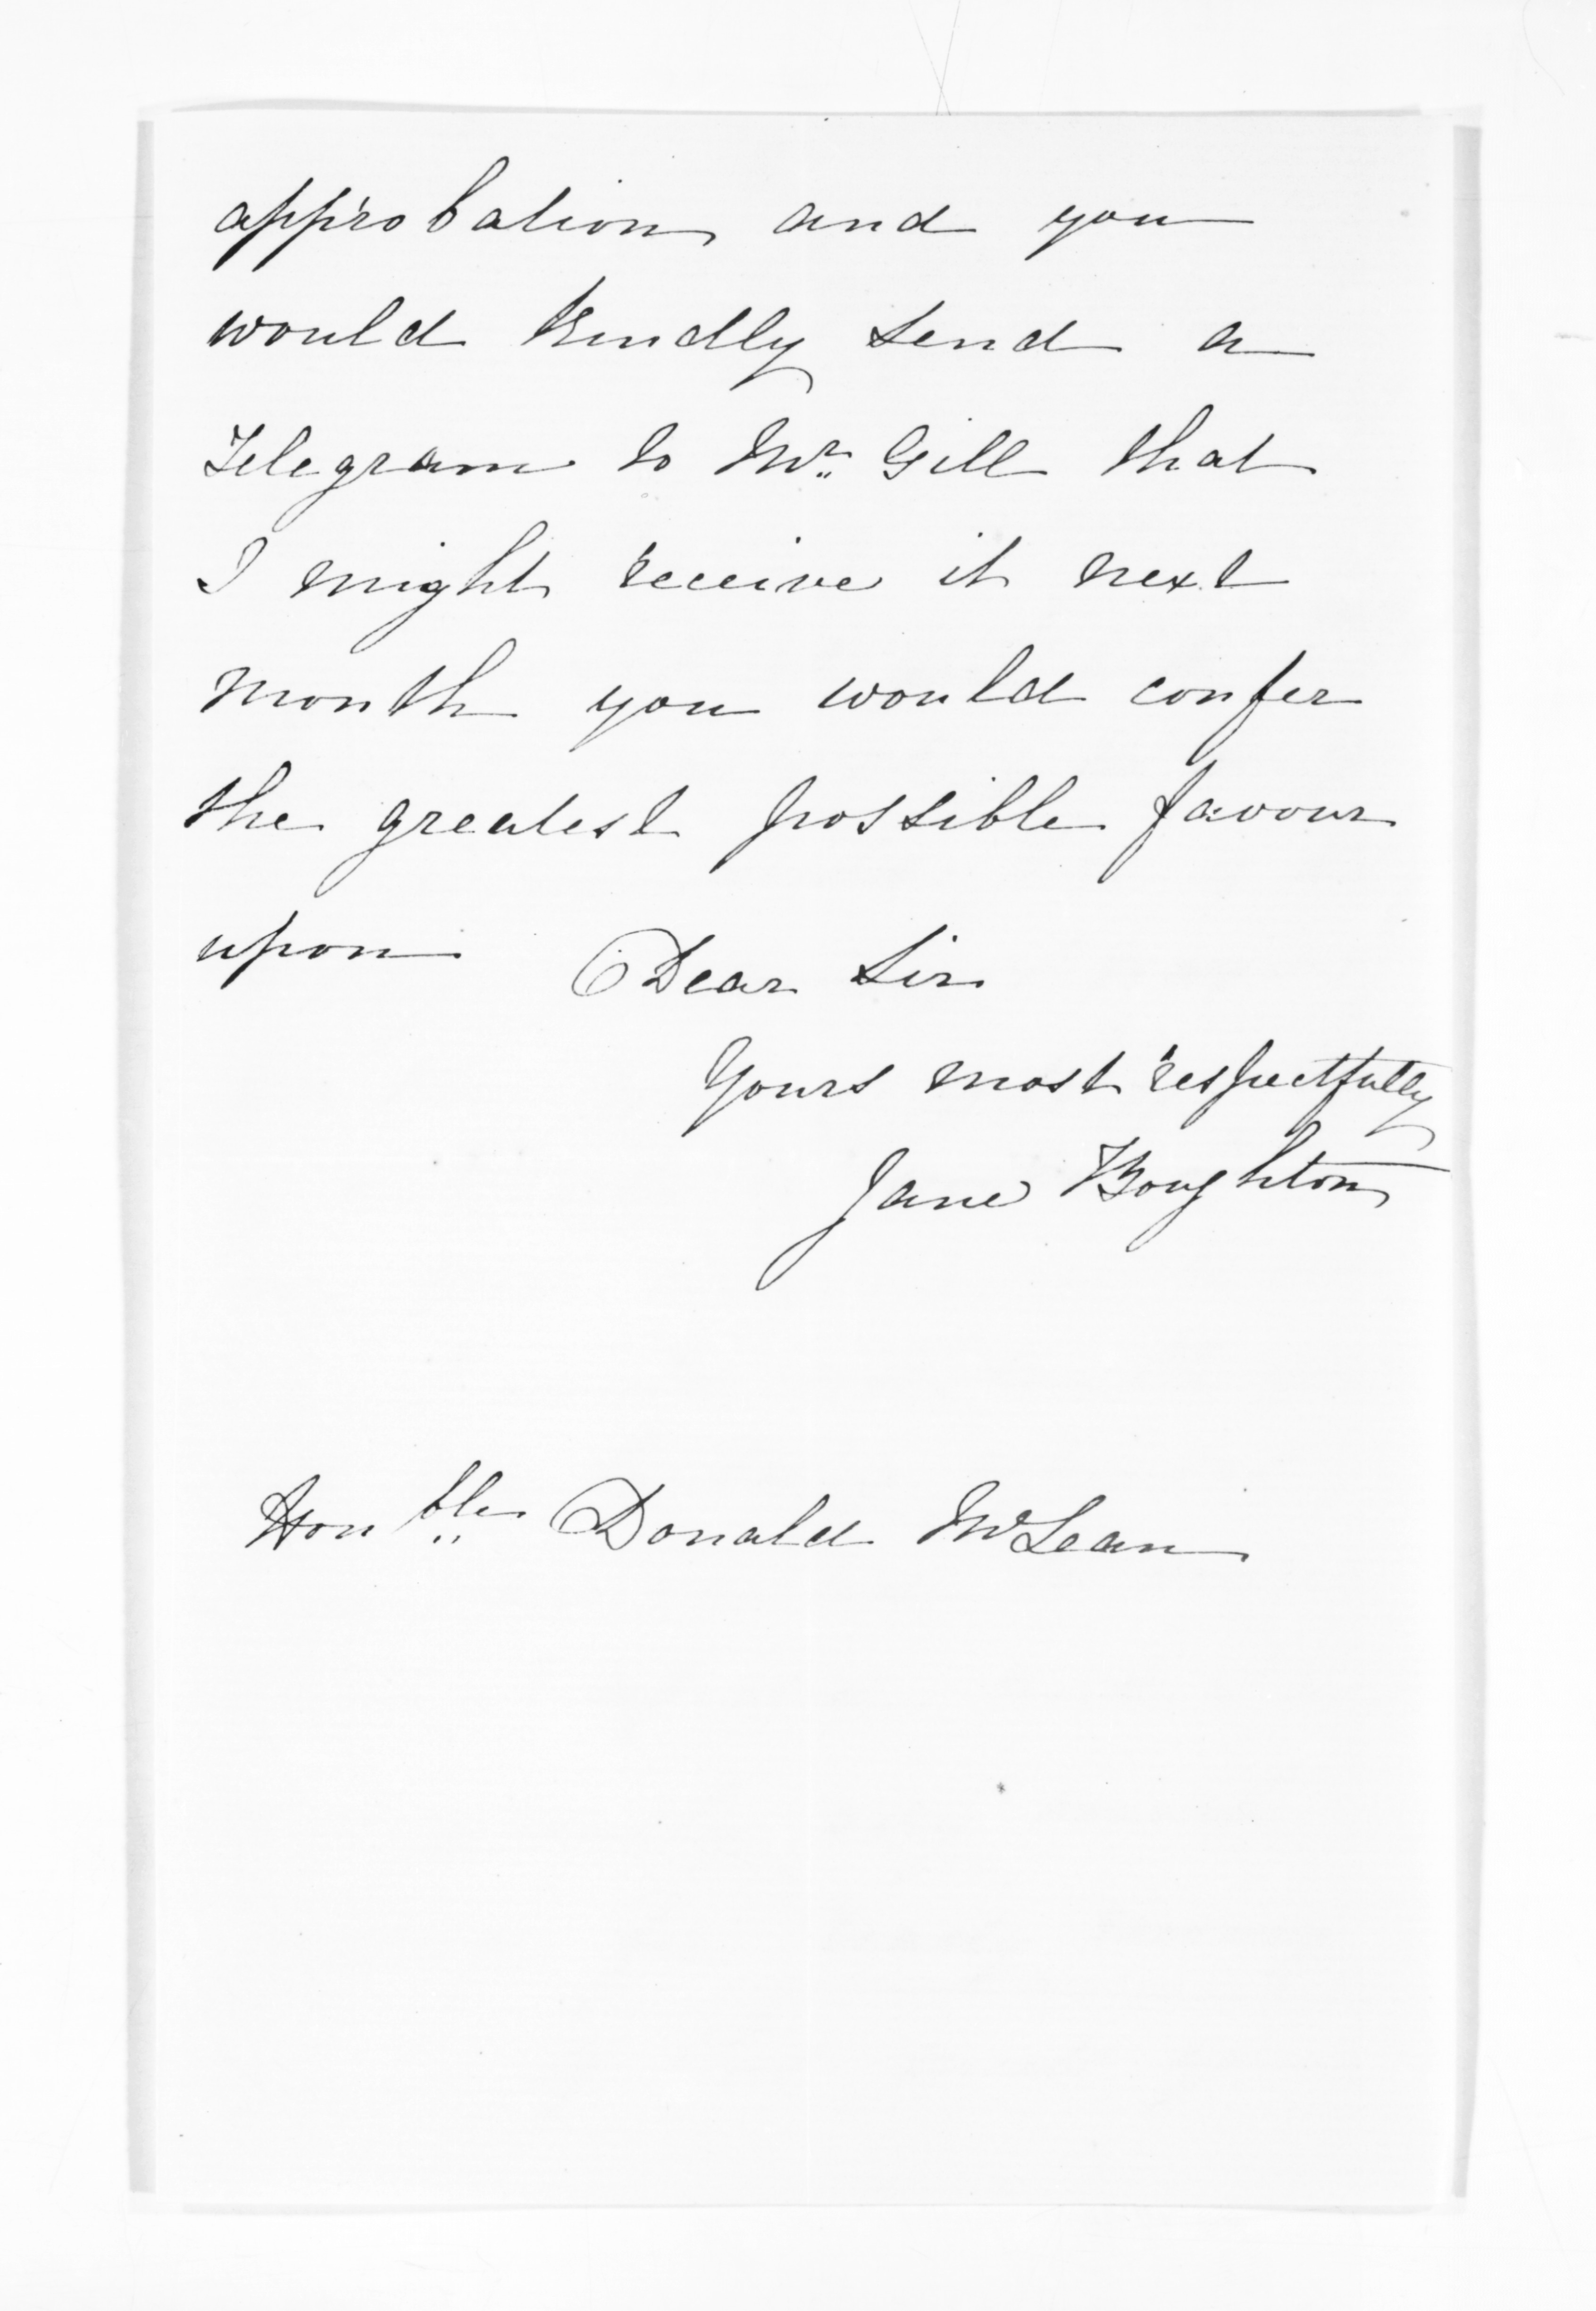 approbation and you
would kindly send a
Telegram to Mr. Gill that
I might receive it next
month you would confer
the greatest possible favour
upon Dear Sir
Yours most respectfully
Jane Boughton
Honble Donald McLean